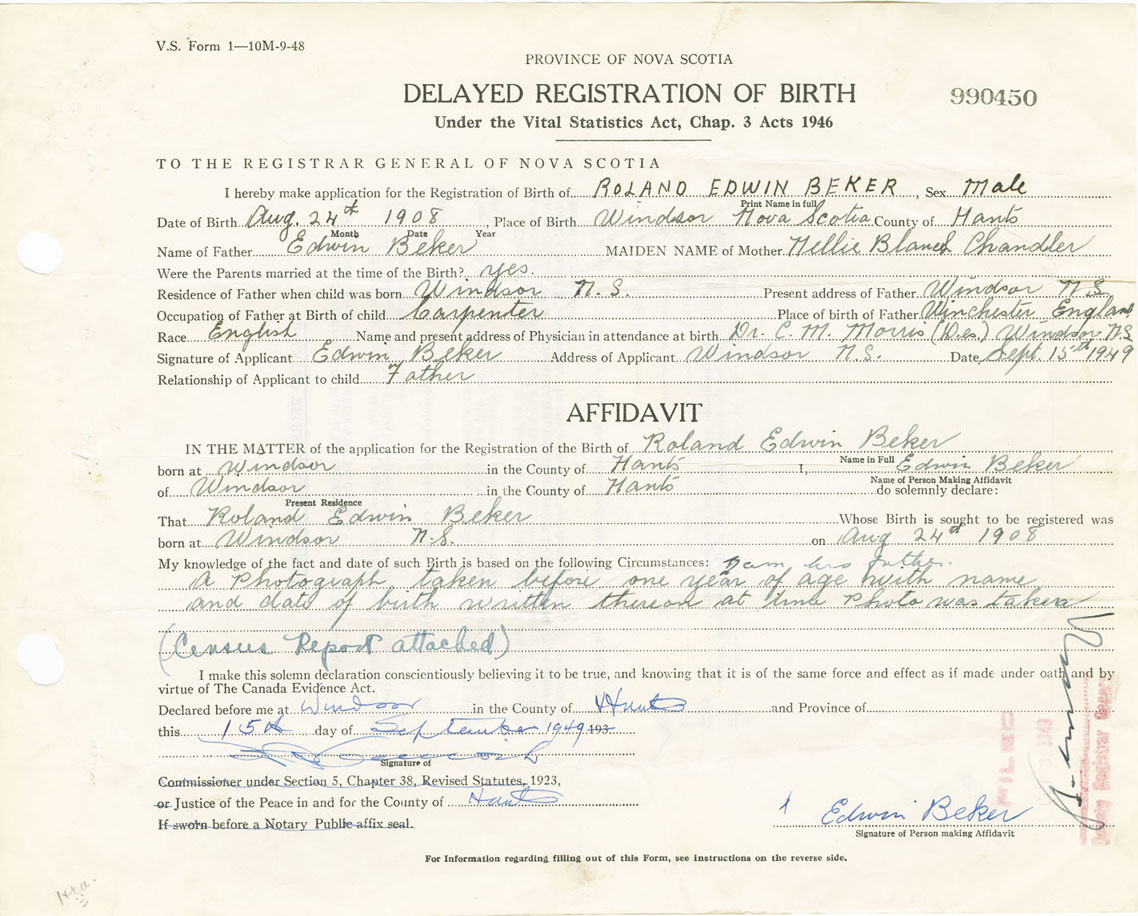 V.S. Form 1—10M-9-48
PROVINCE OF NOVA SCOTIA
DELAYED REGISTRATION OF BIRTH
990450
Under the Vital Statistics Act, Chap. 3 Acts 1946
TO THE REGISTRAR GENERAL OF NOVA SCOTIA
I hereby make application for the Registration of Birth of ROLAND EDWIN BEKER, Sex Male
Print Name in full
Date of Birth Aug. 24th 1908, Place of Birth Windsor Nova Scotia County of Hants
Month Date Year
Name of Father Edwin Beker MAIDEN NAME of Mother Nellie Blanch Chandler
Were the Parents married at the time of the Birth? yes.
Residence of Father when child was born Windsor N.S. Present address of Father Windsor N S
Occupation of Father at Birth of child Carpenter Place of birth of Father Winchester England
Race English Name and present address of Physician in attendance at birth Dr. C. M. Morris (Des) Windsor N.S
Signature of Applicant Edwin Beker Address of Applicant Windsor N.S. Date Sept. 15th 1949
Relationship of Applicant to child Father
AFFIDAVIT
IN THE MATTER of the application for the Registration of the Birth of Roland Edwin Beker
Name in Full
born at Windsor in the County of Hants I, Edwin Beker
Name of Person Making Affidavit
of Windsor in the County of Hants do solemnly declare:
Present Residence
That Roland Edwin Beker Whose Birth is sought to be registered was
born at Windsor N.S. on Aug 24th 1908
My knowledge of the fact and date of such Birth is based on the following Circumstances: I am his father.
A Photograph taken before one year of age with name
and date of birth written thereon at time Photo was taken
(Census Report attached)
I make this solemn declaration conscientiously believing it to be true, and knowing that it is of the same force and effect as if made under oath and by
virtue of The Canada Evidence Act.
Declared before me at Windsor in the County of Hants and Province of
this 15th day of September 1949 193
Signature of
Commissioner under Section 5, Chapter 38, Revised Statutes, 1923,
or Justice of the Peace in and for the County of Hants
If sworn before a Notary Public affix seal.
Edwin Beker
Signature of Person making Affidavit
For Information regarding filling out of this Form, see instructions on the reverse side.
FILED
1949
Deputy Registrar General